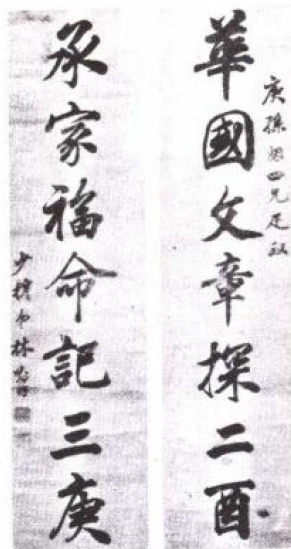 華國文章探二酉
庚孫 四兄 正
承家福命記三庚
少穆弟林